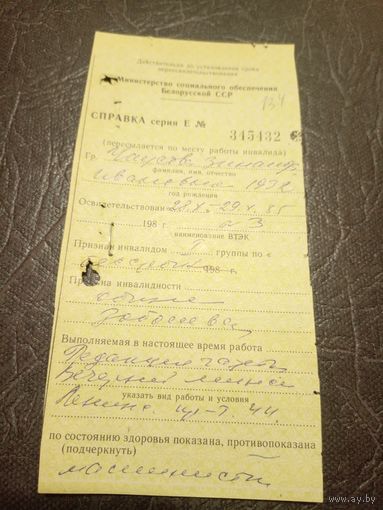 Действительно до установления срока
переосвидетельствования
Министерство социального обеспечения
Белорусской ССР
134
СПРАВКА серия Е № 345432
(пересылается по месту работы инвалида)
Гр.
фамилия, имя, отчество
Ивановна 1932
год рождения
Освидетельствован 28.X-29.X.85
198 г.
наименование ВТЭК
Признан инвалидом II группы по «
198
Причина инвалидности
общее
заболевание
Выполняемая в настоящее время работа
Редакция газеты
Вечерний Минск
указать вид работы и условия
Ленинс. 44
по состоянию здоровья показана, противопоказана
(подчеркнуть)
машинистки
av.by